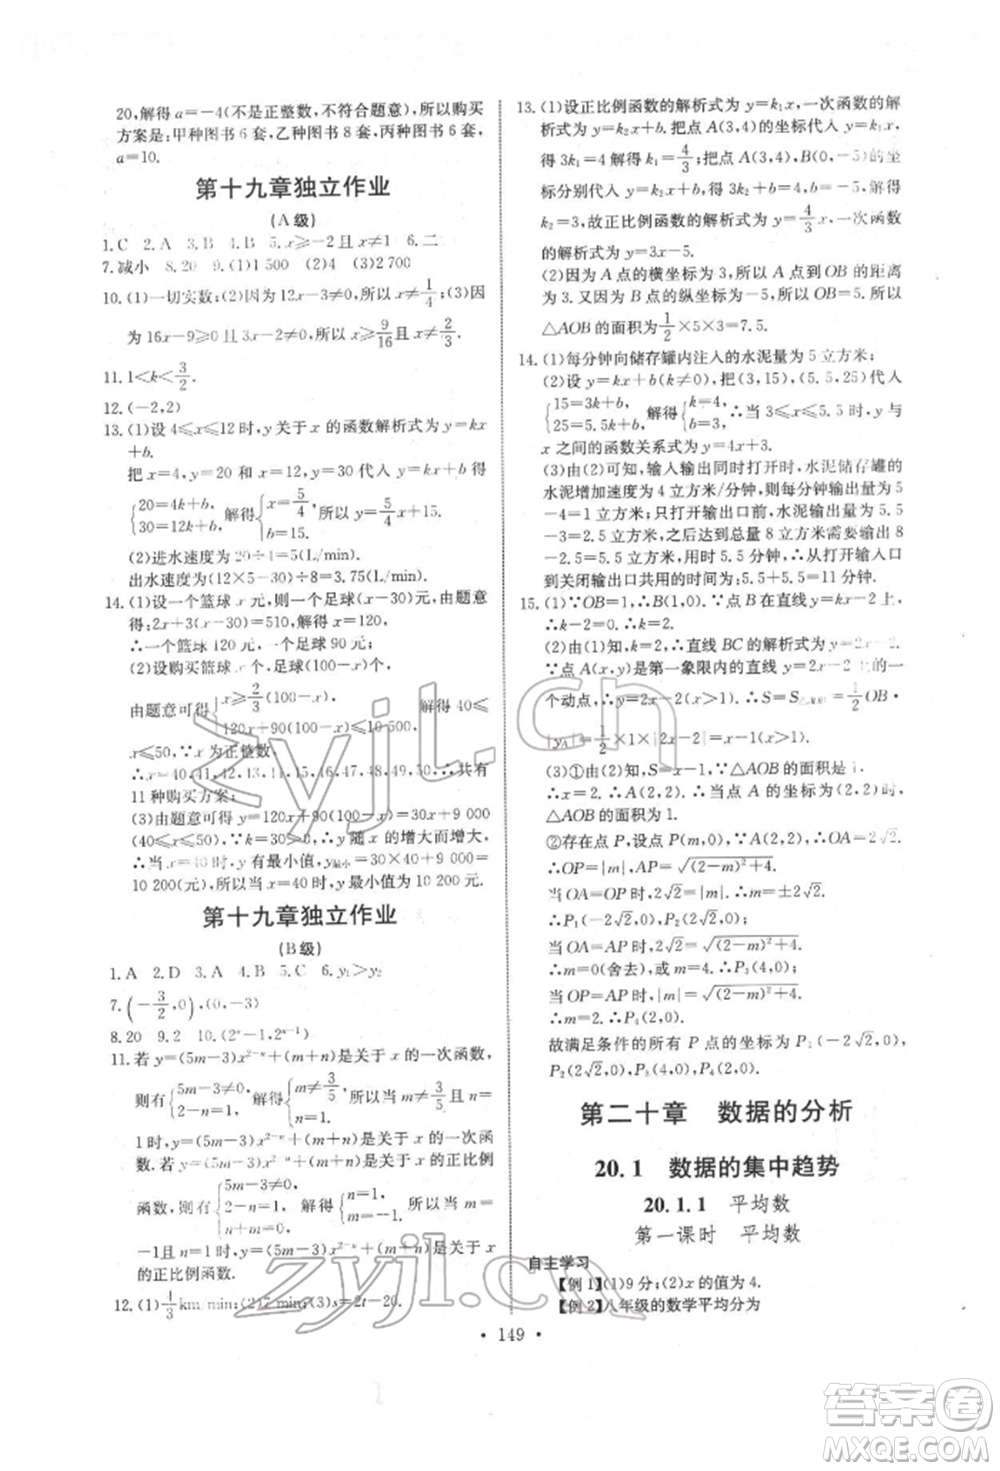 20,解得 a=-4(不是正整数,不符合题意),所以购买
方案是:甲种图书 6 套,乙种图书 8 套,丙种图书 6 套,
a=10.
第十九章独立作业
(A级)
1.C 2.A 3.B 4.B 5.x≥-2且 x≠1 6.二
7.减小 8.20 9.(1)1 500 (2)4 (3)2 700
10.(1)一切实数;(2)因为 12x-3≠0,所以 x≠1/4;(3)因
为 16x-9≥0且 3x-2≠0,所以 x≥9/16且 x≠2/3.
11.1<k<3/2.
12.(-2,2)
13.(1)设 4≤x≤12时,y 关于 x 的函数解析式为 y=kx
+b.
把 x=4,y=20 和 x=12,y=30 代入 y=kx+b 得
{20=4k+b, 30=12k+b, 解得{k=5/4, b=15. 所以 y=5/4x+15.
(2)进水速度为 20÷4=5(L/min),
出水速度为(12×5-30)÷8=3.75(L/min).
14.(1)设一个篮球 x 元,则一个足球(x-30)元,由题意
得:2x+3(x-30)=510,解得:x=120,
∴一个篮球 120 元,一个足球 90 元;
(2)设购买篮球 x 个,足球(100-x)个,
由题意可得{x≥2/3(100-x), 120x+90(100-x)≤10 500, 解得 40≤
x≤50,∵x 为正整数,
∴x=40,41,42,43,44,45,46,47,48,49,50,∴共有
11 种购买方案;
(3)由题意可得 y=120x+90(100-x)=30x+9 000
(40≤x≤50),∵k=30>0,∴y 随 x 的增大而增大,
∴当 x=40 时,y 有最小值,y最小=30×40+9 000=
10 200(元),所以当 x=40 时,y 最小值为 10 200 元.
第十九章独立作业
(B级)
1.A 2.D 3.A 4.B 5.C 6.y₁>y₂
7.(-3/2,0),(0,-3)
8.20 9.2 10.(2ⁿ-1,2ⁿ⁻¹)
11.若 y=(5m-3)x²⁻ⁿ+(m+n)是关于 x 的一次函数,
则有{5m-3≠0, 2-n=1, 解得{m≠3/5, n=1. 所以当 m≠3/5且 n=
1时,y=(5m-3)x²⁻ⁿ+(m+n)是关于 x 的一次函
数.若 y=(5m-3)x²⁻ⁿ+(m+n)是关于 x 的正比例
函数,则有{5m-3≠0, 2-n=1, m+n=0, 解得{m=-1, n=1. 所以当 m=
-1且 n=1时,y=(5m-3)x²⁻ⁿ+(m+n)是关于 x
的正比例函数.
12.(1)1/3 km/min;(2)7 min;(3)s=2t-20.
13.(1)设正比例函数的解析式为 y=k₁x,一次函数的解
析式为 y=k₂x+b.把点 A(3,4)的坐标代入 y=k₁x
得 3k₁=4解得 k₁=4/3;把点 A(3,4),B(0,-5)的坐
标分别代入 y=k₂x+b,得 3k₂+b=4,b=-5,解得
k₂=3,故正比例函数的解析式为 y=4/3x,一次函数的
的解析式为 y=3x-5.
(2)因为 A 点的横坐标为 3,所以 A 到 OB 的距离
为 3.又因为 B 点的纵坐标为-5,所以 OB=5,所以
△AOB 的面积为1/2×5×3=7.5.
14.(1)每分钟向储存罐内注入的水泥量为 5 立方米;
(2)设 y=kx+b(k≠0),把(3,15),(5.5,25)代入
{15=3k+b, 25=5.5k+b, 解得{k=4, b=3, ∴当 3≤x≤5.5 时,y 与
x 之间的函数关系式为 y=4x+3.
(3)由(2)可知,输入输出同时打开时,水泥储存罐的
水泥增加速度为 4 立方米/分钟,则每分钟输出量为 5
-4=1立方米;只打开输出口前,水泥输出量为 5.5
-3=2.5立方米,之后达到总量 8 立方米需输出 8
-2.5=5.5立方米,用时 5.5 分钟,∴从打开输入口
到关闭输出口共用的时间为:5.5+5.5=11 分钟.
15.(1)∵OB=1,∴B(1,0).∵点 B 在直线 y=kx-2上,
∴k-2=0.∴k=2.
(2)由(1)知,k=2,∴直线 BC 的解析式为 y=2x-2.
∵点 A(x,y)是第一象限内的直线 y=2x-2上的一
个动点,∴y=2x-2(x>1).∴S=S△AOB=1/2OB·
|yA|=1/2×1×|2x-2|=x-1(x>1).
(3)①由(2)知,S=x-1(x>1).∵△AOB 的面积是 1.
∴x=2.∴A(2,2).∴当点 A 的坐标为(2,2)时,
△AOB 的面积为 1.
②存在点 P,设点 P(m,0),∵A(2,2),∴OA=2√2.
∴OP=|m|,AP=√((2-m)²+4).
当 OA=OP 时,∴2√2=|m|.∴m=±2√2.
∴P₁(-2√2,0),P₂(2√2,0).
当 OA=AP 时,∴2√2=√((2-m)²+4).
∴m=0(舍去)或 m=4.∴P₃(4,0).
当 OP=AP 时,∴|m|=√((2-m)²+4).
∴m=2.∴P₄(2,0).
故满足条件的所有 P 点的坐标为 P₁(-2√2,0),
P₂(2√2,0),P₃(4,0),P₄(2,0).
第二十章 数据的分析
20.1 数据的集中趋势
20.1.1 平均数
第一课时 平均数
自主学习
【例 1】(1)9 分;(2)x 的值为 4.
【例 2】八年级的数学平均分为
• 149 •
zyjl.cn
zyjl.cn
答案卷
MXQE.COM